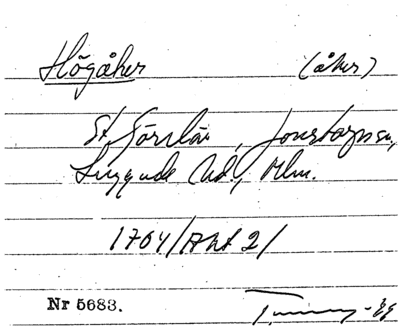 Högåker (åker)
St. Görslöv, Jonstorps sn,
Luggude hd., Mlm.
1704/Akt 2/
Nr 5683.